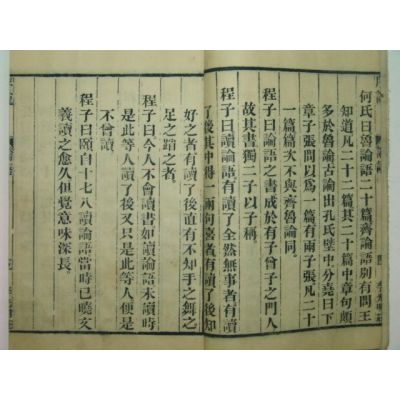 何氏曰魯論語二十篇齊論語別有問王
知道凡二十二篇其二十篇中章句頗
多於魯論古論出孔氏壁中分堯曰下
章子張問以爲一篇有兩子張凡二十
一篇篇次不與齊魯論同
程子曰論語之書成於有子曾子之門人
故其書獨二子以子稱
程子曰讀論語有讀了全然無事者有讀
了後其中得一兩句喜者有讀了後知
好之者有讀了後直有不知手之舞之
足之蹈之者
程子曰今人不會讀書如讀論語未讀時
是此等人讀了後又只是此等人便是
不曾讀
程子曰頤自十七八讀論語當時已曉文
義讀之愈久但覺意味深長